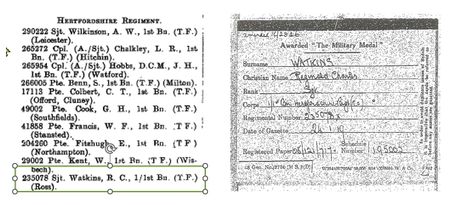 HERTFORDSHIRE REGIMENT.
290222 Sjt. Wilkinson, A. W., 1st Bn. (T.F.)
265272 Cpl. (A./Sjt.) Chalkley, L. R., 1st
Bn. (T.F.) (Hitchin).
265954 Cpl. (A./Sjt.) Hobbs, D.C.M., J. H.,
1st Bn. (T.F.) (Watford).
266005 Pte. Benn, S., 1st Bn. (T.F.) (Milton).
17113 Pte. Colbert, C. T., 1st Bn. (T.F.)
(Offord, Cluney).
49002 Pte. Cook, G. H., 1st Bn. (T.F.)
(Southfields).
41858 Pte. Francis, W. F., 1st Bn. (T F.)
(Stansted).
204260 Pte. Fitzhugh, E., 1st Bn. (T F.)
(Northampton).
29002 Pte. Kent, W., 1st Bn. (T F.) (Wis-
bech).
235078 Sjt. Watkins, R. C., 1/1st Bn. (T.F.)
(Ross).
Awarded "The Military Medal"
Surname WATKINS
Christian Names Reginald Charles
Rank Sjt
Corps
Regimental Number 235078
Date of Gazette
Schedule
Number